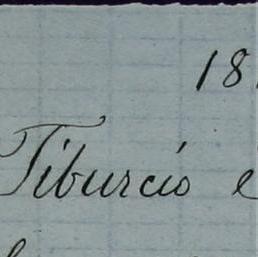 18
Tiburcio e